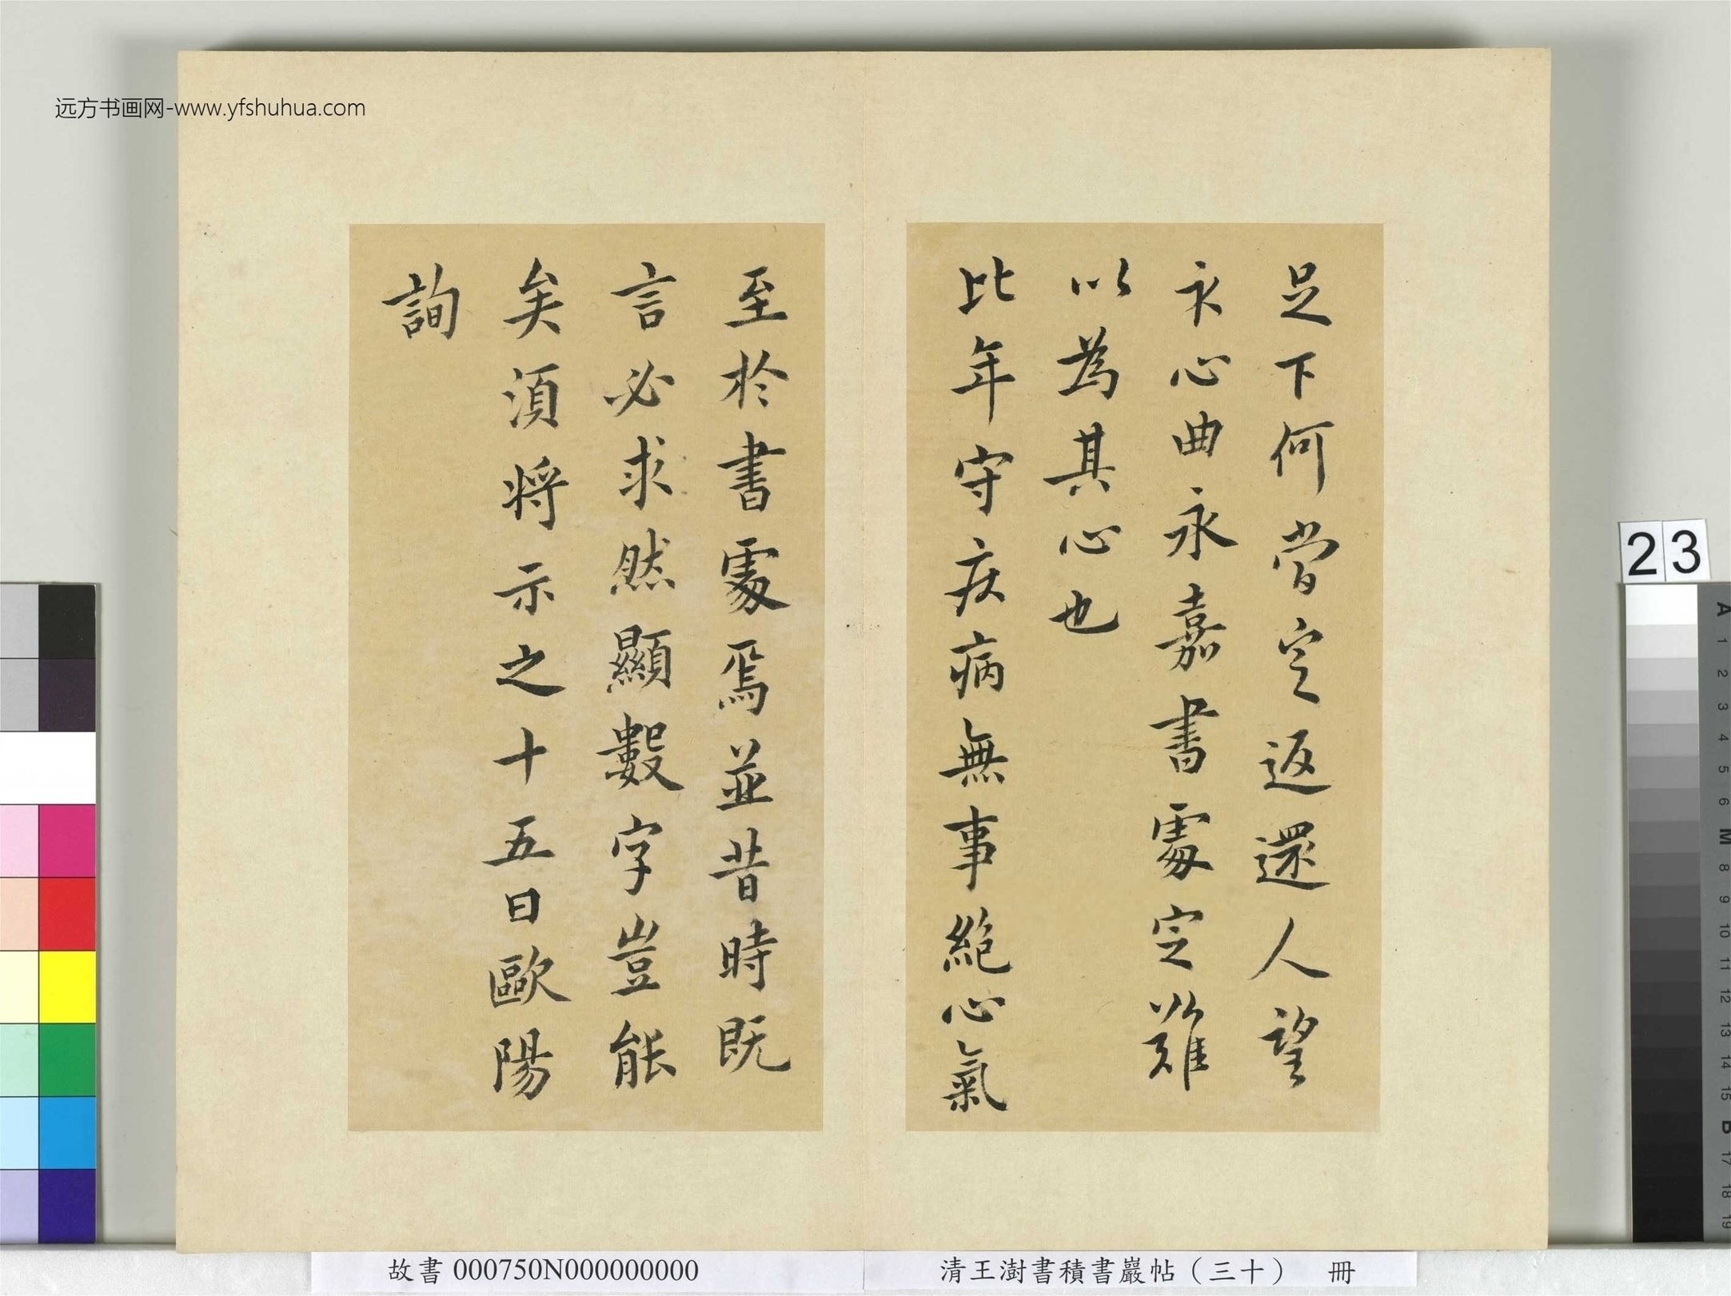 远方书画网-www.yfshuhua.com
足下何當定返還人望
永心曲永嘉書處定難
以為其心也
比年守疾病無事絕心氣
至於書處焉並昔時既
言必求然顯數字豈能
矣須將示之十五日歐陽
詢
23
故書 000750N000000000
清王澍書積書巖帖（三十） 冊